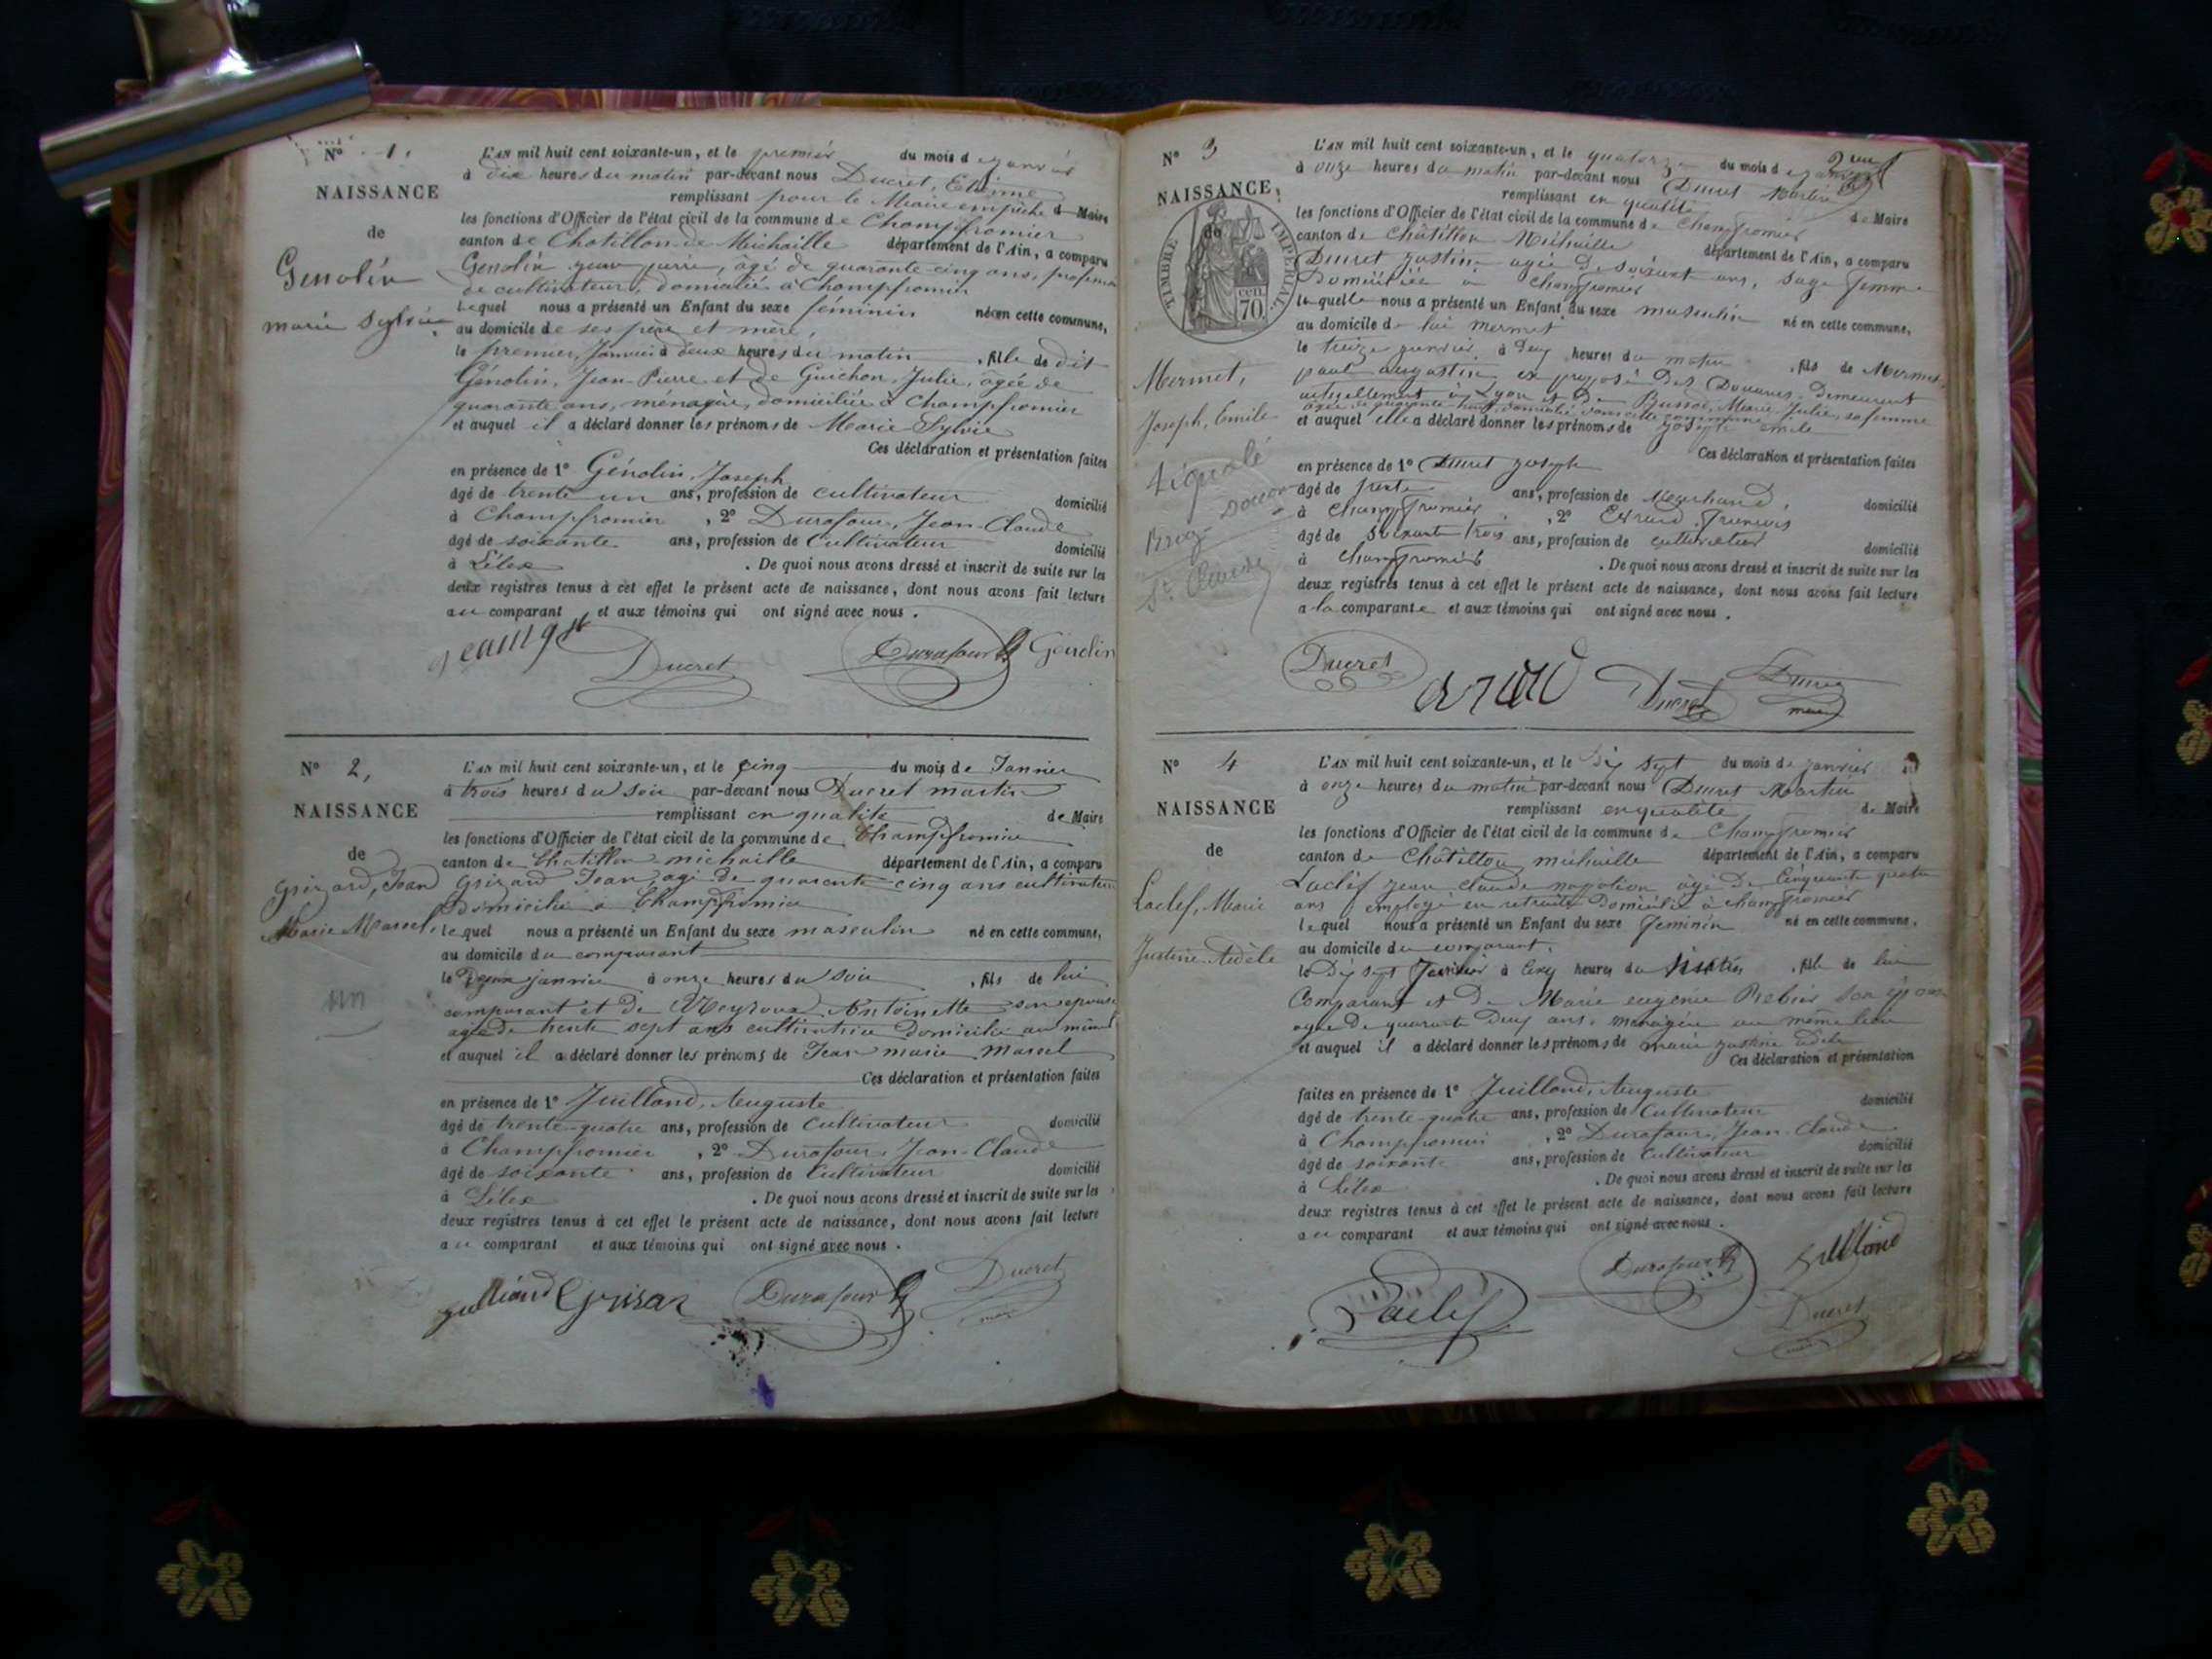 N° 1.
NAISSANCE
de
Genolin
marie Sylvie
L'AN mil huit cent soixante-un, et le premier du mois de janvier
à dix heures du matin par-devant nous Ducret, Etienne
remplissant pour le Maire empêché d Maire
les fonctions d'Officier de l'état civil de la commune de Champfromier
canton de Chatillon de Michaille département de l'Ain, a comparu
Genolin jean pierre, âgé de quarante-cinq ans, profession
de cultivateur, domicilié à Champfromier
Lequel nous a présenté un Enfant du sexe féminin née en cette commune,
au domicile de ses père et mère,
le premier Janvier à deux heures du matin , fille de dit
Génolin, Jean-Pierre et de Guichon, Julie, âgée de
quarante ans, ménagère, domiciliée à Champfromier
et auquel il a déclaré donner les prénoms de Marie Sylvie
Ces déclaration et présentation faites
en présence de 1° Génolin, Joseph
âgé de trente un ans, profession de cultivateur domicilié
à Champfromier , 2° Durafour, Jean-Claude
âgé de soixante ans, profession de Cultivateur domicilié
à Lélex . De quoi nous avons dressé et inscrit de suite sur les
deux registres tenus à cet effet le présent acte de naissance, dont nous avons fait lecture
au comparant et aux témoins qui ont signé avec nous .
Ducret Durafour Génolin
N° 2,
NAISSANCE
de
Grizard, Jean
Marie Marcel,
un
L'AN mil huit cent soixante-un, et le cinq du mois de Janvier
à trois heures du soir par-devant nous Ducret martin
remplissant en qualité de Maire
les fonctions d'Officier de l'état civil de la commune de Champfromier
canton de Chatillon michaille département de l'Ain, a comparu
Grizard Jean agé de quarante-cinq ans cultivateur
Domicilié à Champfromier
lequel nous a présenté un Enfant du sexe masculin né en cette commune,
au domicile du comparant
le Deux janvier à onze heures du soir , fils de lui
comparant et de Meyroux Antoinette son epouse
agée de trente sept ans cultivatrice Domicilié au même
et auquel il a déclaré donner les prénoms de Jean marie Marcel
Ces déclaration et présentation faites
en présence de 1° Juilland, Auguste
âgé de trente-quatre ans, profession de Cultivateur domicilié
à Champfromier , 2° Durafour, Jean-Claude
âgé de soixante ans, profession de Cultivateur domicilié
à Lélex . De quoi nous avons dressé et inscrit de suite sur les
deux registres tenus à cet effet le présent acte de naissance, dont nous avons fait lecture
au comparant et aux témoins qui ont signé avec nous .
juilland Grisar Durafour Ducret
N° 3
NAISSANCE,
de
TIMBRE IMPÉRIAL.
70 cen.
Mermet,
Joseph, Emile
Signalé
Brig
St Claude
L'AN mil huit cent soixante-un, et le quatorze du mois de janvier
à onze heures du matin par-devant nous Ducret Martin
remplissant en qualité de Maire
les fonctions d'Officier de l'état civil de la commune de Champfromier
canton de Châtillon Michaille département de l'Ain, a comparu
Ducret justine agée de soixant ans, sage femme
Domiciliée à Champfromier
laquelle nous a présenté un Enfant du sexe masculin né en cette commune,
au domicile de lui mermet
le treize janvier à Deux heures du matin , fils de Mermet
paul augustin ex preposé Des Douanes, Demeurant
actuellement à Lyon et De Bussod, Marie Julie, sa femme
agée de quarante huit, domiciliée
et auquel elle a déclaré donner les prénoms de joseph emile
Ces déclaration et présentation faites
en présence de 1° Ducret joseph
âgé de trente ans, profession de Marchand, domicilié
à Champfromier , 2° Evrard François
âgé de soixante trois ans, profession de cultivateur domicilié
à Champfromier . De quoi nous avons dressé et inscrit de suite sur les
deux registres tenus à cet effet le présent acte de naissance, dont nous avons fait lecture
a la comparante et aux témoins qui ont signé avec nous .
Ducret Ducret Ducret
maire
N° 4
NAISSANCE
de
Laclef, Marie
Justine Adèle
L'AN mil huit cent soixante-un, et le Dix sept du mois de janvier
à onze heures du matin par-devant nous Ducret Martin
remplissant en qualité de Maire
les fonctions d'Officier de l'état civil de la commune de Champfromier
canton de Châtillon michaille département de l'Ain, a comparu
Laclef jean claude napolion âgé De Cinquante quatre
ans employé en retraite Domicilié à champfromier
lequel nous a présenté un Enfant du sexe feminin né en cette commune,
au domicile du comparant
le Dix sept Janvier à Cinq heures du matin , fille de lui
Comparant et De Marie eugenie Rebier son épouse
agée De quarante Deux ans, menagère au même lieu
et auquel il a déclaré donner les prénoms de marie justine adèle
Ces déclaration et présentation
faites en présence de 1° Juilland, Auguste
âgé de trente-quatre ans, profession de Cultivateur domicilié
à Champfromier , 2° Durafour, Jean-Claude
âgé de soixante ans, profession de Cultivateur domicilié
à Lélex . De quoi nous avons dressé et inscrit de suite sur les
deux registres tenus à cet effet le présent acte de naissance, dont nous avons fait lecture
au comparant et aux témoins qui ont signé avec nous .
Laclef Durafour juilland
Ducret